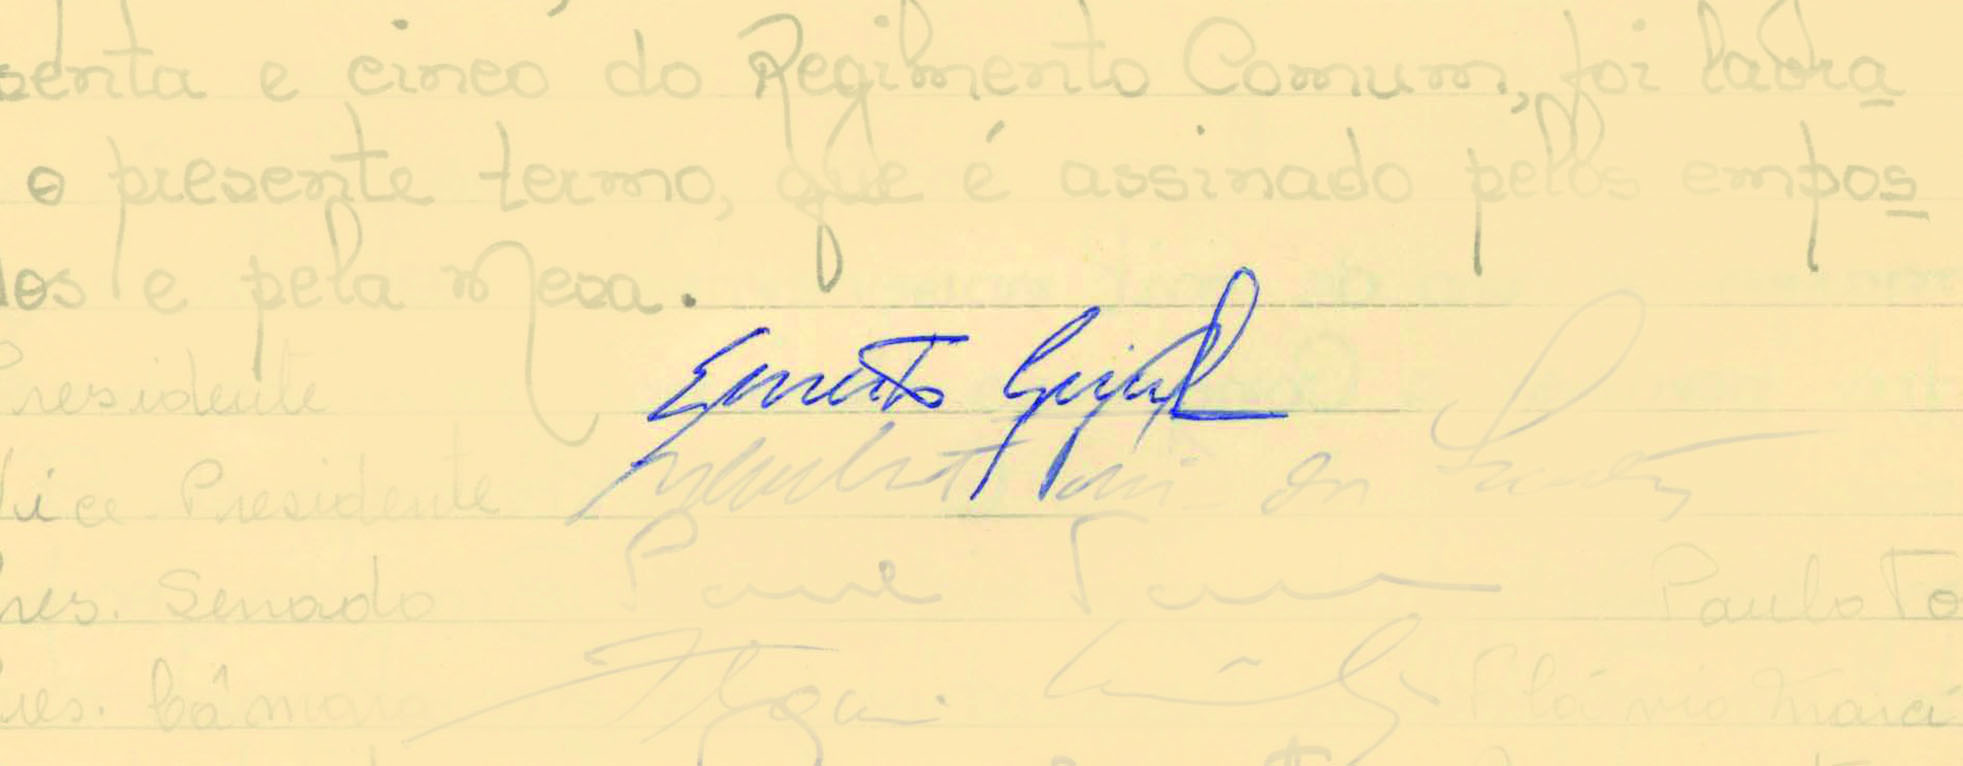 senta e cinco do Regimento Comum, foi lavra
o presente termo, que é assinado pelos empos
dos e pela Mesa.
Presidente Ernesto Geisel
Vice Presidente
Pres. Senado Paulo To
Pres. Câmara Flávio Marcí